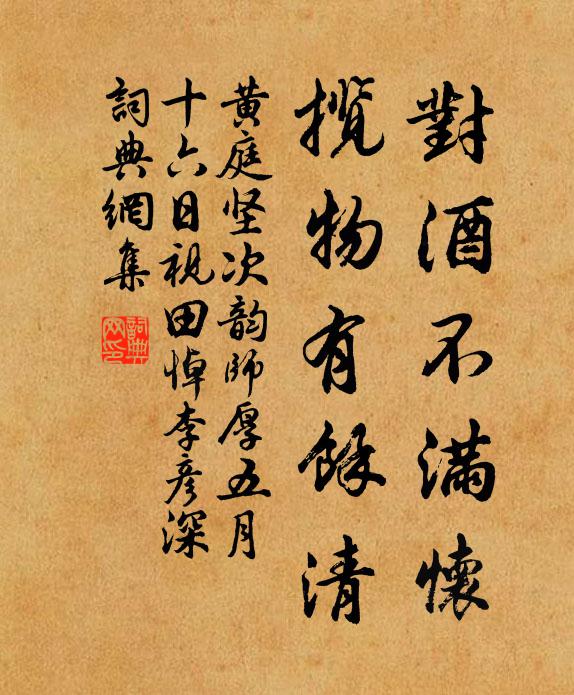 對酒不滿懷
攬物有餘清
黄庭坚次韵師厚五月
十六日視田悼李彦深
詞典網集
詞典
网印